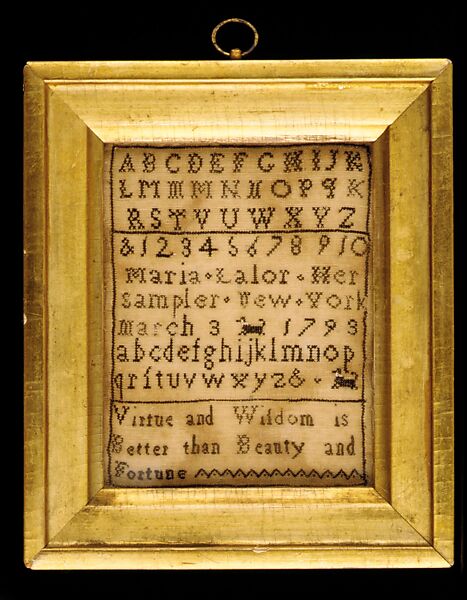 ABCDEFGHIJK
LMMMNNOPqK
RSTVUWXYZ
&12345678910
Maria Lalor Her
Sampler New York
March 3 1793
abcdefghijklmnop
qrſtuvwxyz&
Virtue and Wiſdom is
Better than Beauty and
Fortune